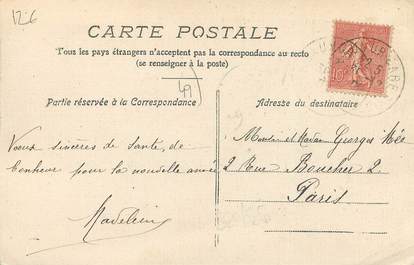 12-6
CARTE POSTALE
Tous les pays étrangers n'acceptent pas la correspondance au recto
(se renseigner à la poste)
49
Partie réservée à la Correspondance
Adresse du destinataire
Vœux sincères de santé, de
bonheur pour la nouvelle année
Madeleine
Monsieur et Madame Georges Mée
2 Rue Boucher 2
Paris
10